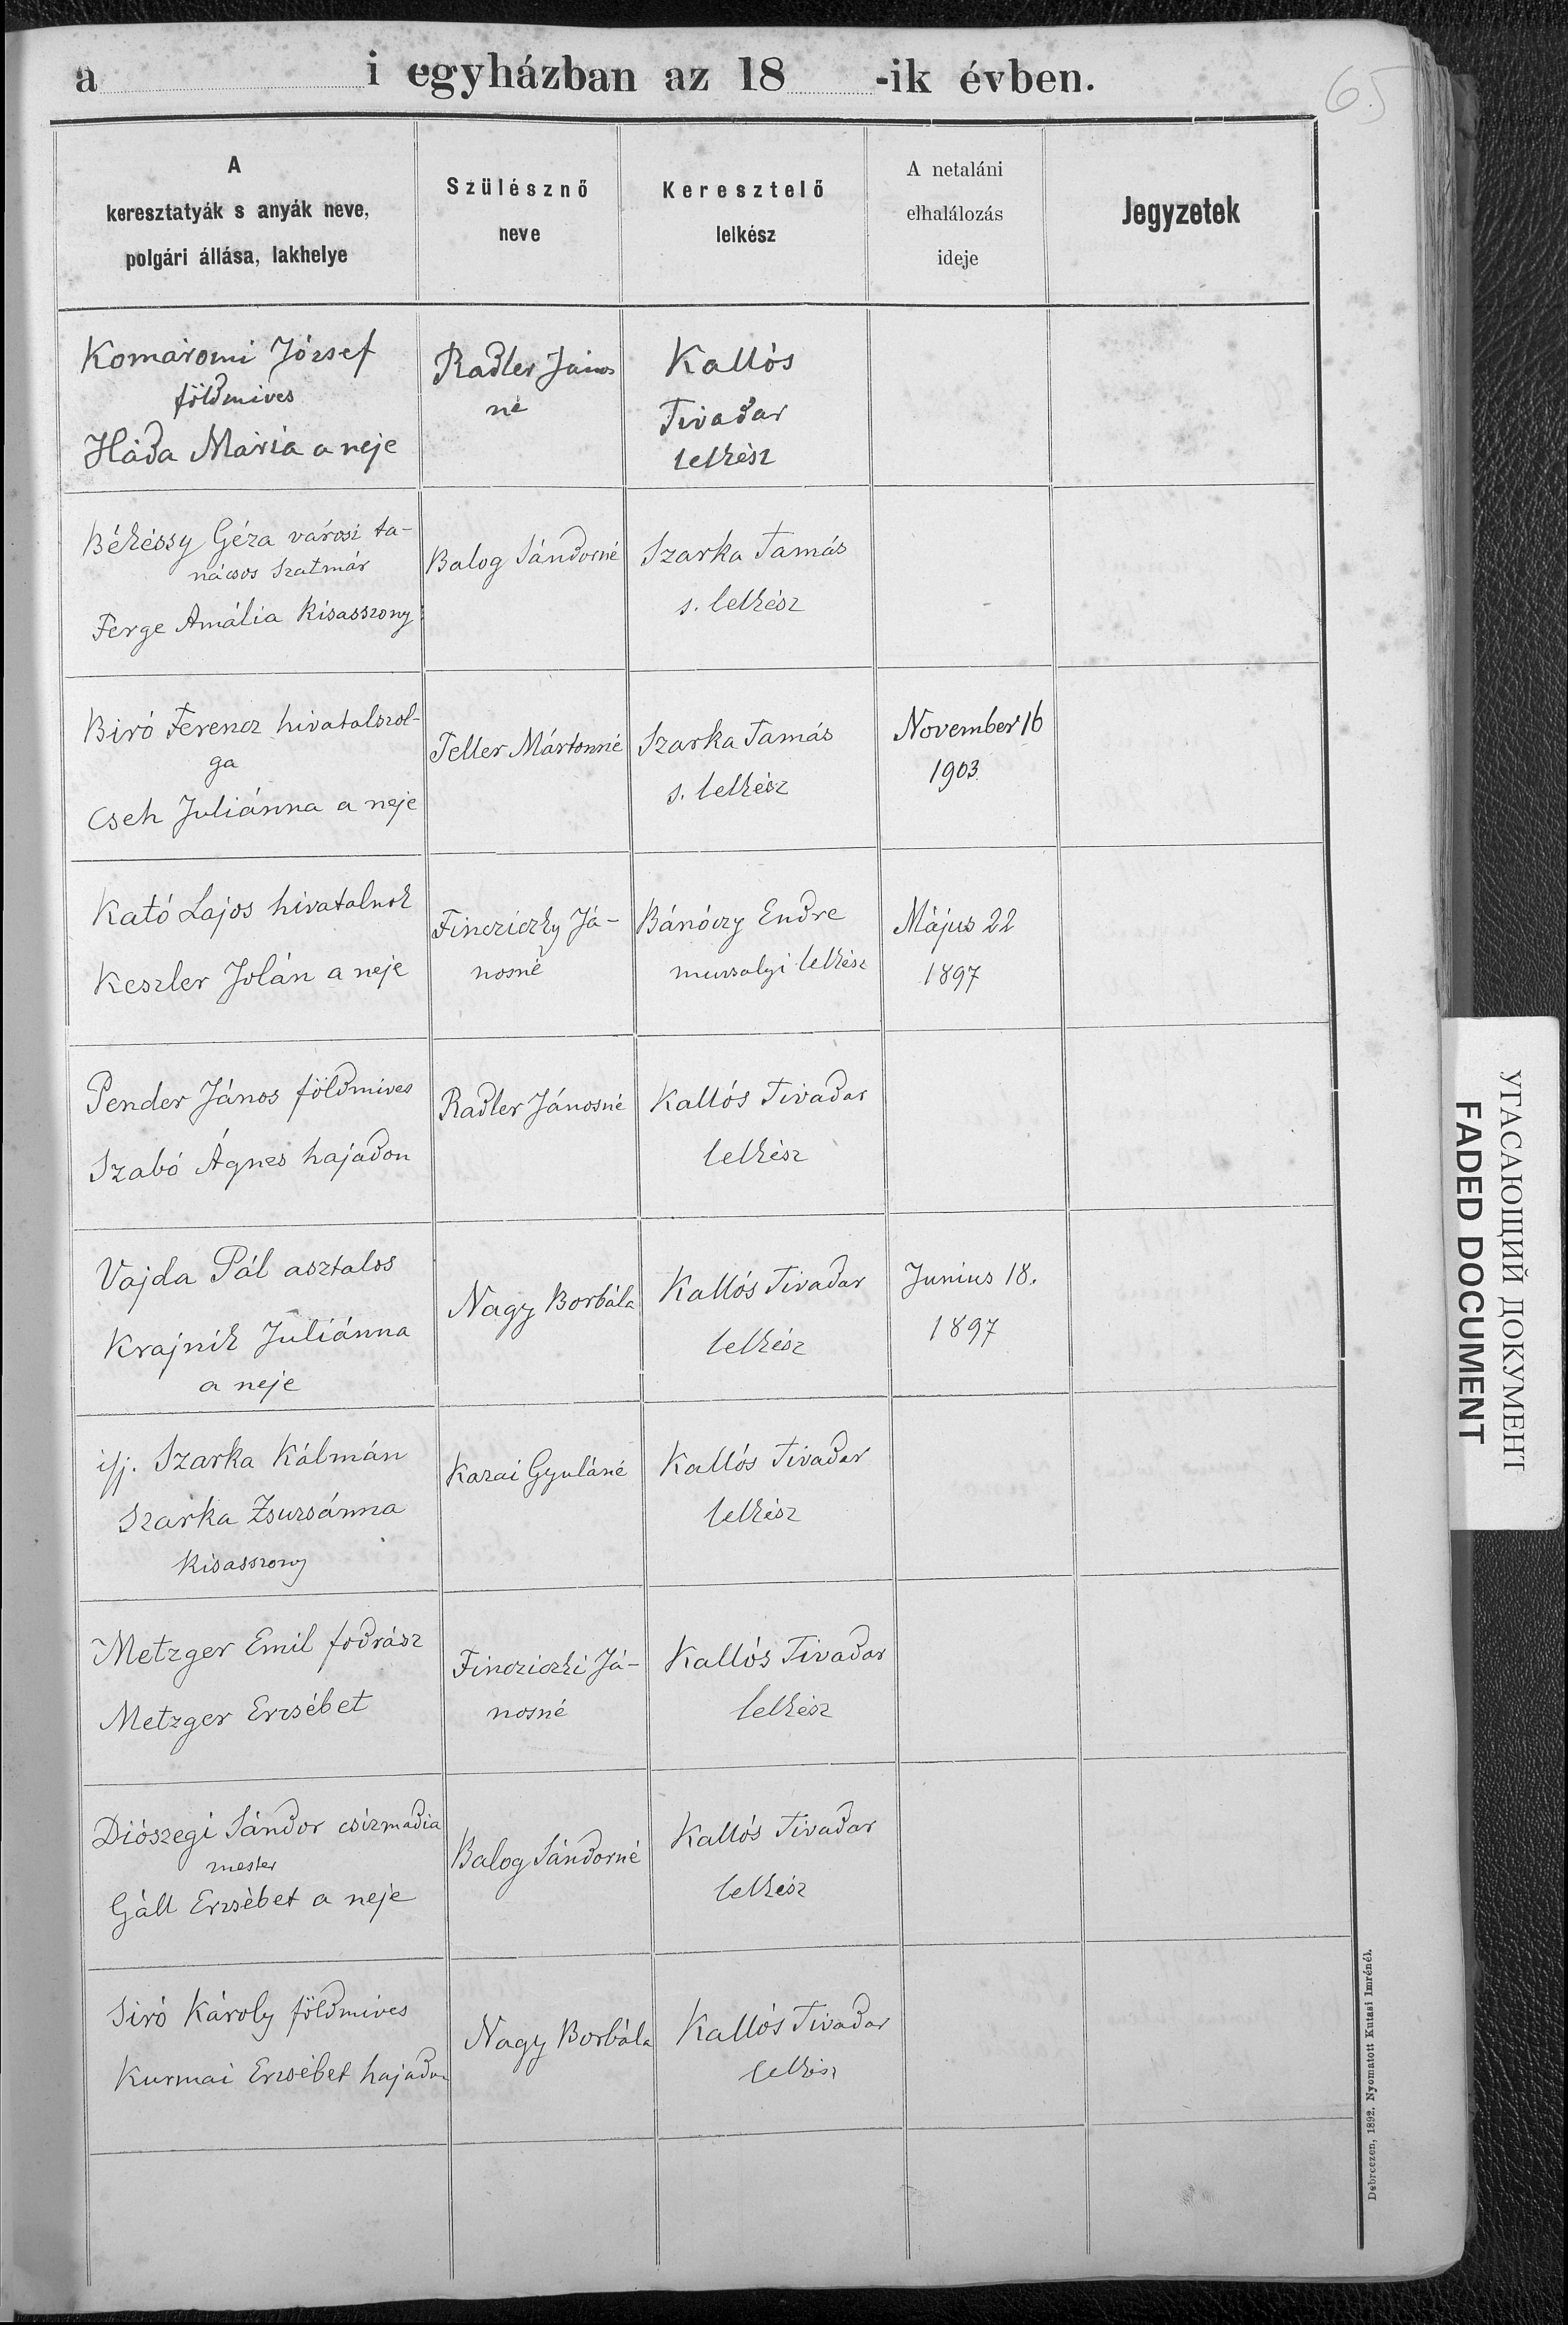 a i egyházban az 18 -ik évben.
65
A
keresztatyák s anyák neve,
polgári állása, lakhelye
Szülésznő
neve
Keresztelő
lelkész
A netaláni
elhalálozás
ideje
Jegyzetek
Komáromi József
földmives
Háda Mária a neje
Radler János
né
Kallós
Tivadar
lelkész
Békéssy Géza városi ta-
nácsos Szatmár
Ferge Amália kisasszony
Balog Sándorné
Szarka Tamás
s. lelkész
Biró Ferencz hivatalszol-
ga
Cseh Juliánna a neje
Teller Mártonné
Szarka Tamás
s. lelkész
November 16
1903.
Kató Lajos hivatalnok
Keszler Jolán a neje
Fincziczky Já-
nosné
Bánóczy Endre
muzsalyi lelkész
Május 22
1897
Pender János földmives
Szabó Ágnes hajadon
Radler Jánosné
Kallós Tivadar
lelkész
Vajda Pál asztalos
Krajnik Juliánna
a neje
Nagy Borbála
Kallós Tivadar
lelkész
Junius 18.
1897
ifj. Szarka Kálmán
Szarka Zsuzsánna
kisasszony
Kazai Gyuláné
Kallós Tivadar
lelkész
Metzger Emil fodrász
Metzger Erzsébet
Fincziczki Já-
nosné
Kallós Tivadar
lelkész
Diószegi Sándor csizmadia
mester
Gáll Erzsébet a neje
Balog Sándorné
Kallós Tivadar
lelkész
Siró Károly földmives
Kurmai Erzsébet hajadon
Nagy Borbála
Kallós Tivadar
lelkész
Debreczen, 1892. Nyomatott Kutasi Imrénél.
УГАСАЮЩИЙ ДОКУМЕНТ
FADED DOCUMENT